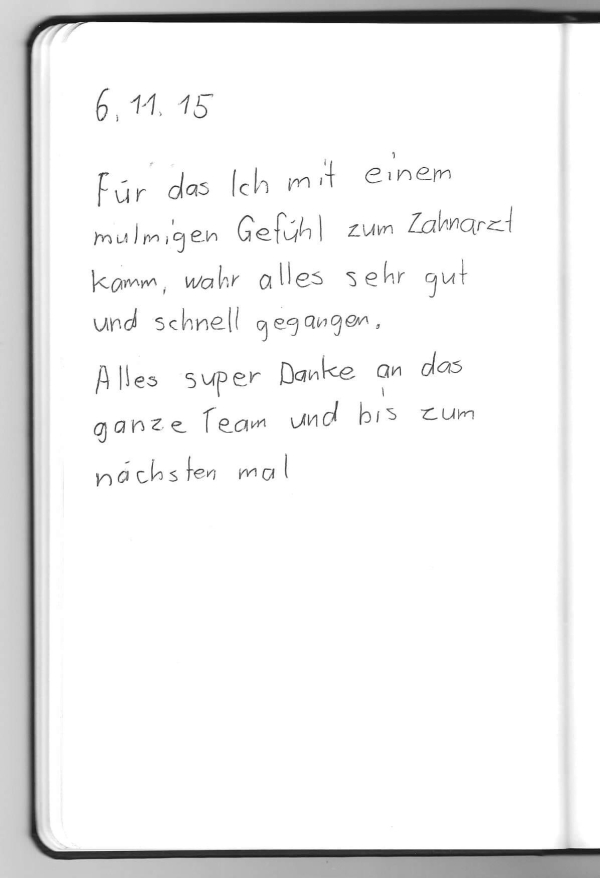 6. 11. 15
Für das Ich mit einem
mulmigen Gefühl zum Zahnarzt
kamm, wahr alles sehr gut
und schnell gegangen.
Alles super Danke an das
ganze Team und bis zum
nächsten mal